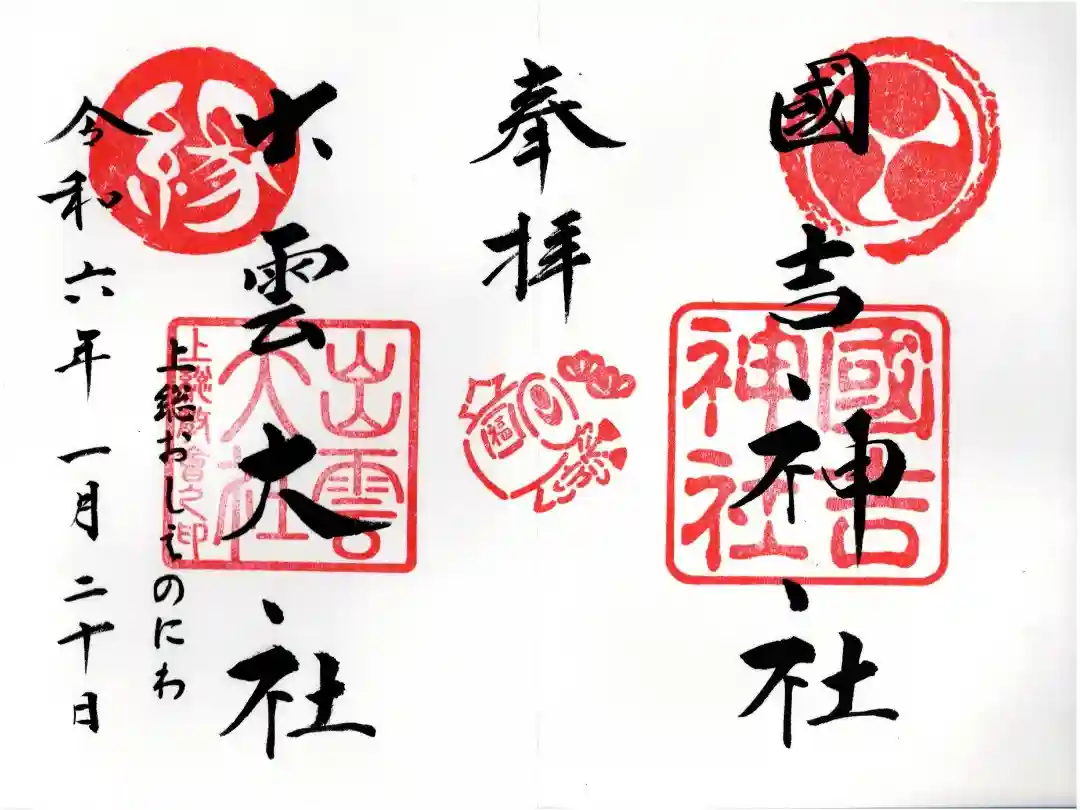 國吉神社
國吉
神社
奉拝
福
縁
出雲大社
出雲
大社
上總教會之印
上総おしえのにわ
令和六年一月二十日